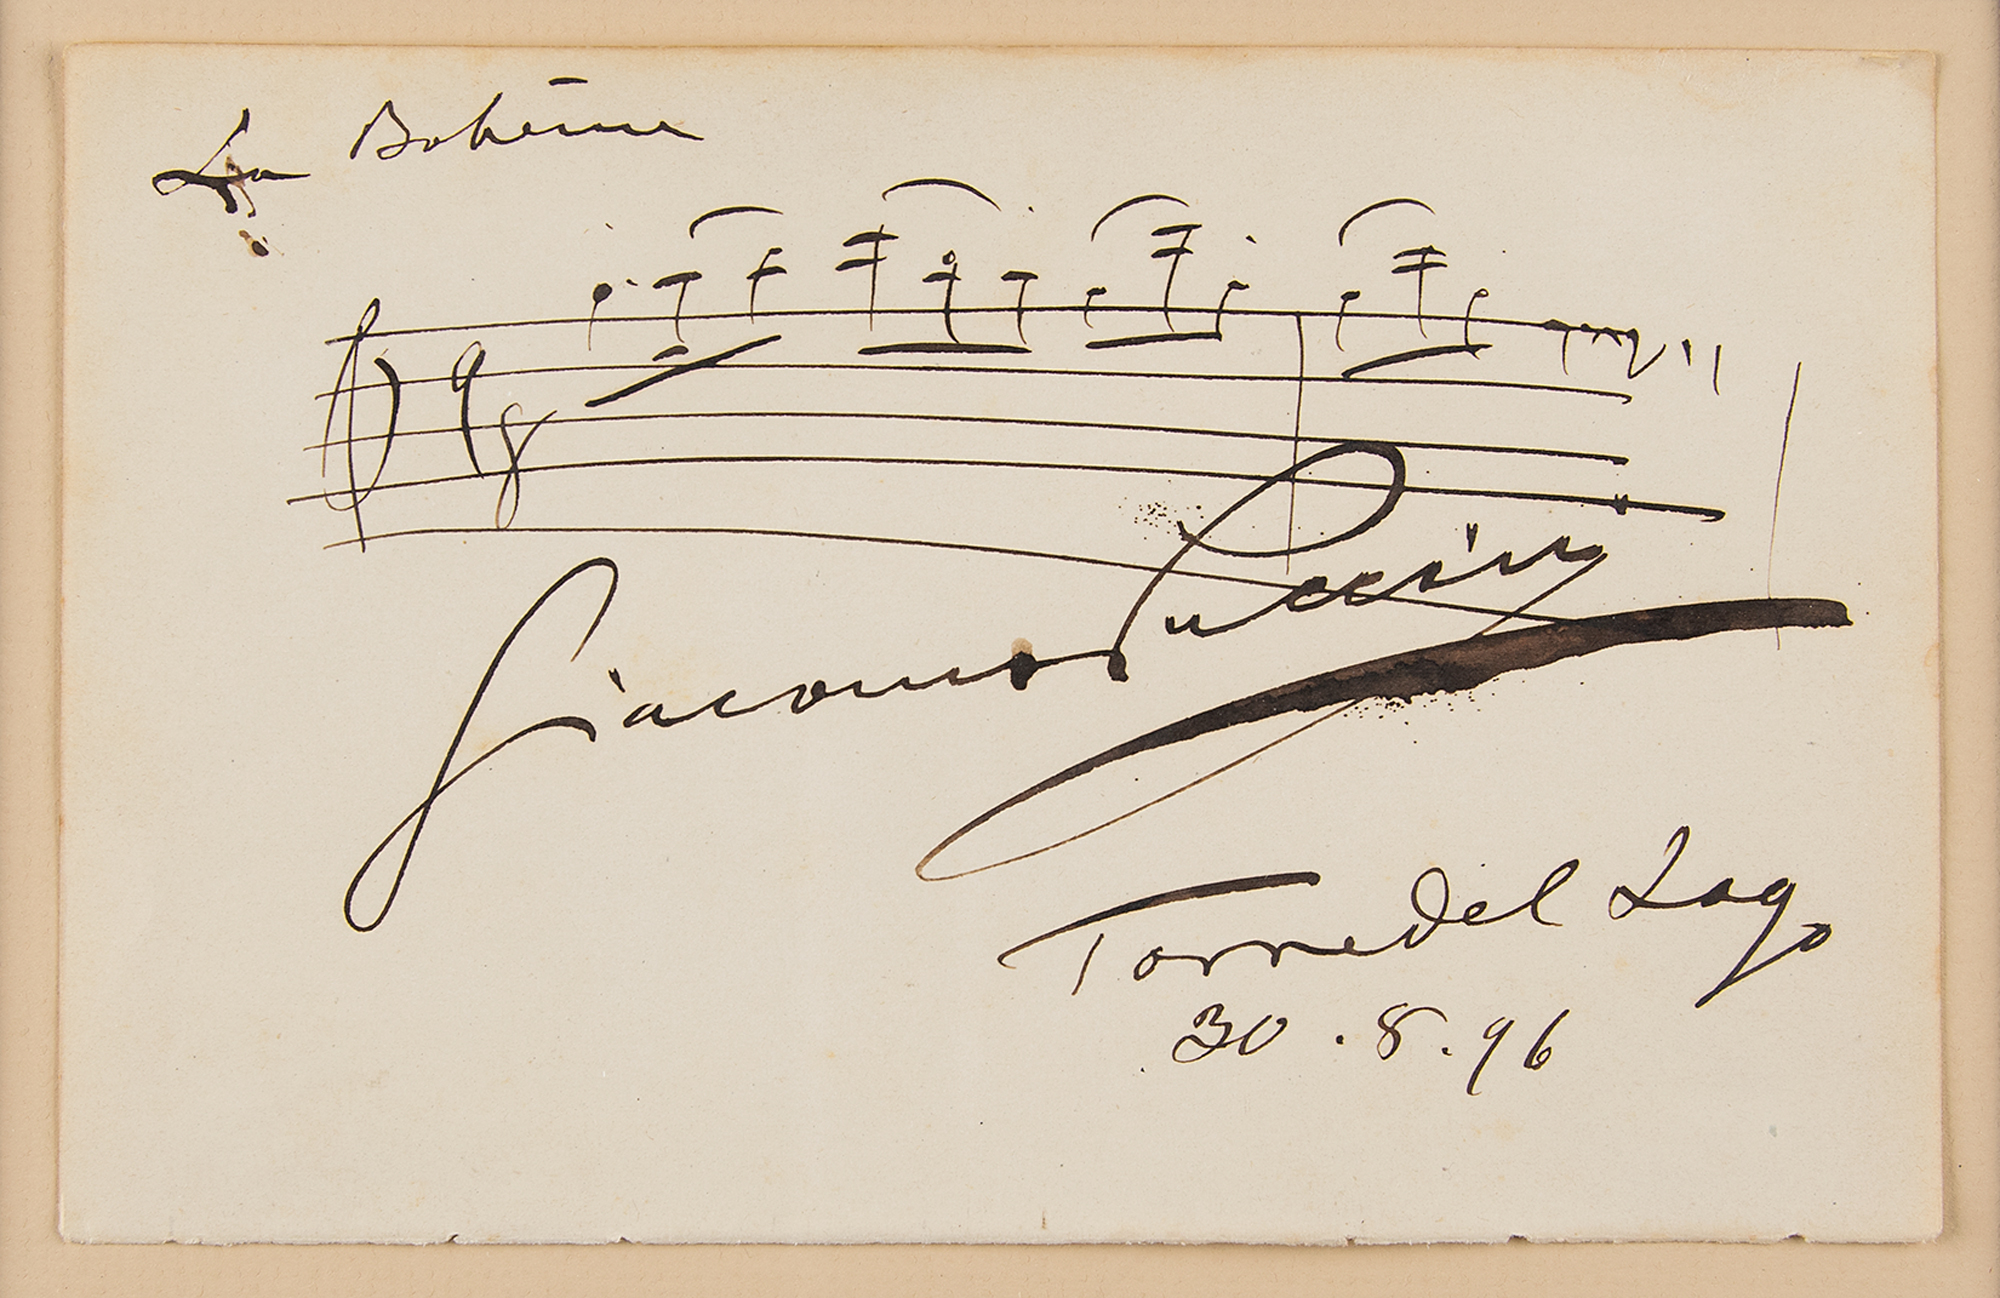 La Bohème
9
8
Giacomo Puccini
Torre del Lago
30.8.96